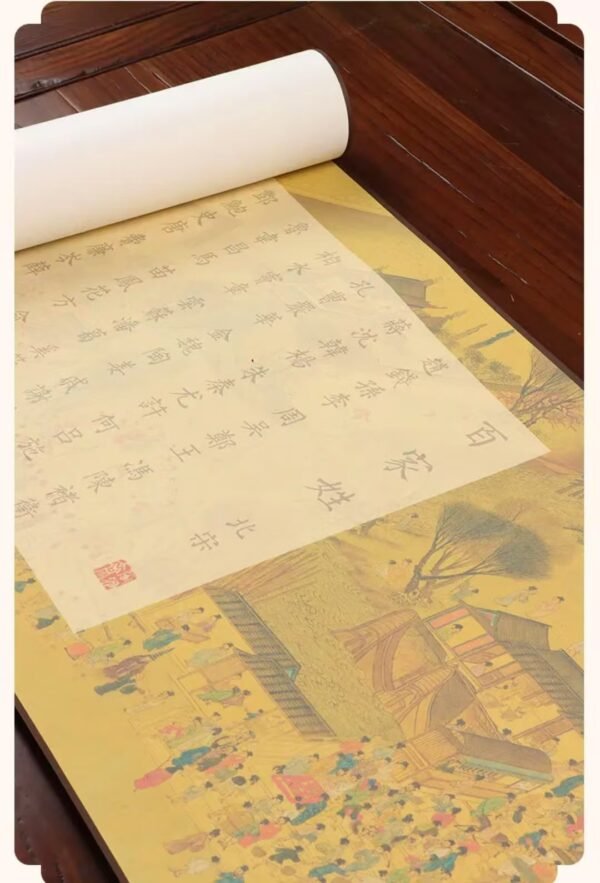 百家姓 北宋
趙錢孫李 周吳鄭王 馮陳褚衛
蔣沈韓楊 朱秦尤許 何呂施
孔曹嚴華 金魏陶姜 戚謝
柏水竇章 雲蘇潘葛 奚
魯韋昌馬 苗鳳花方
酆鮑史唐 費廉岑薛